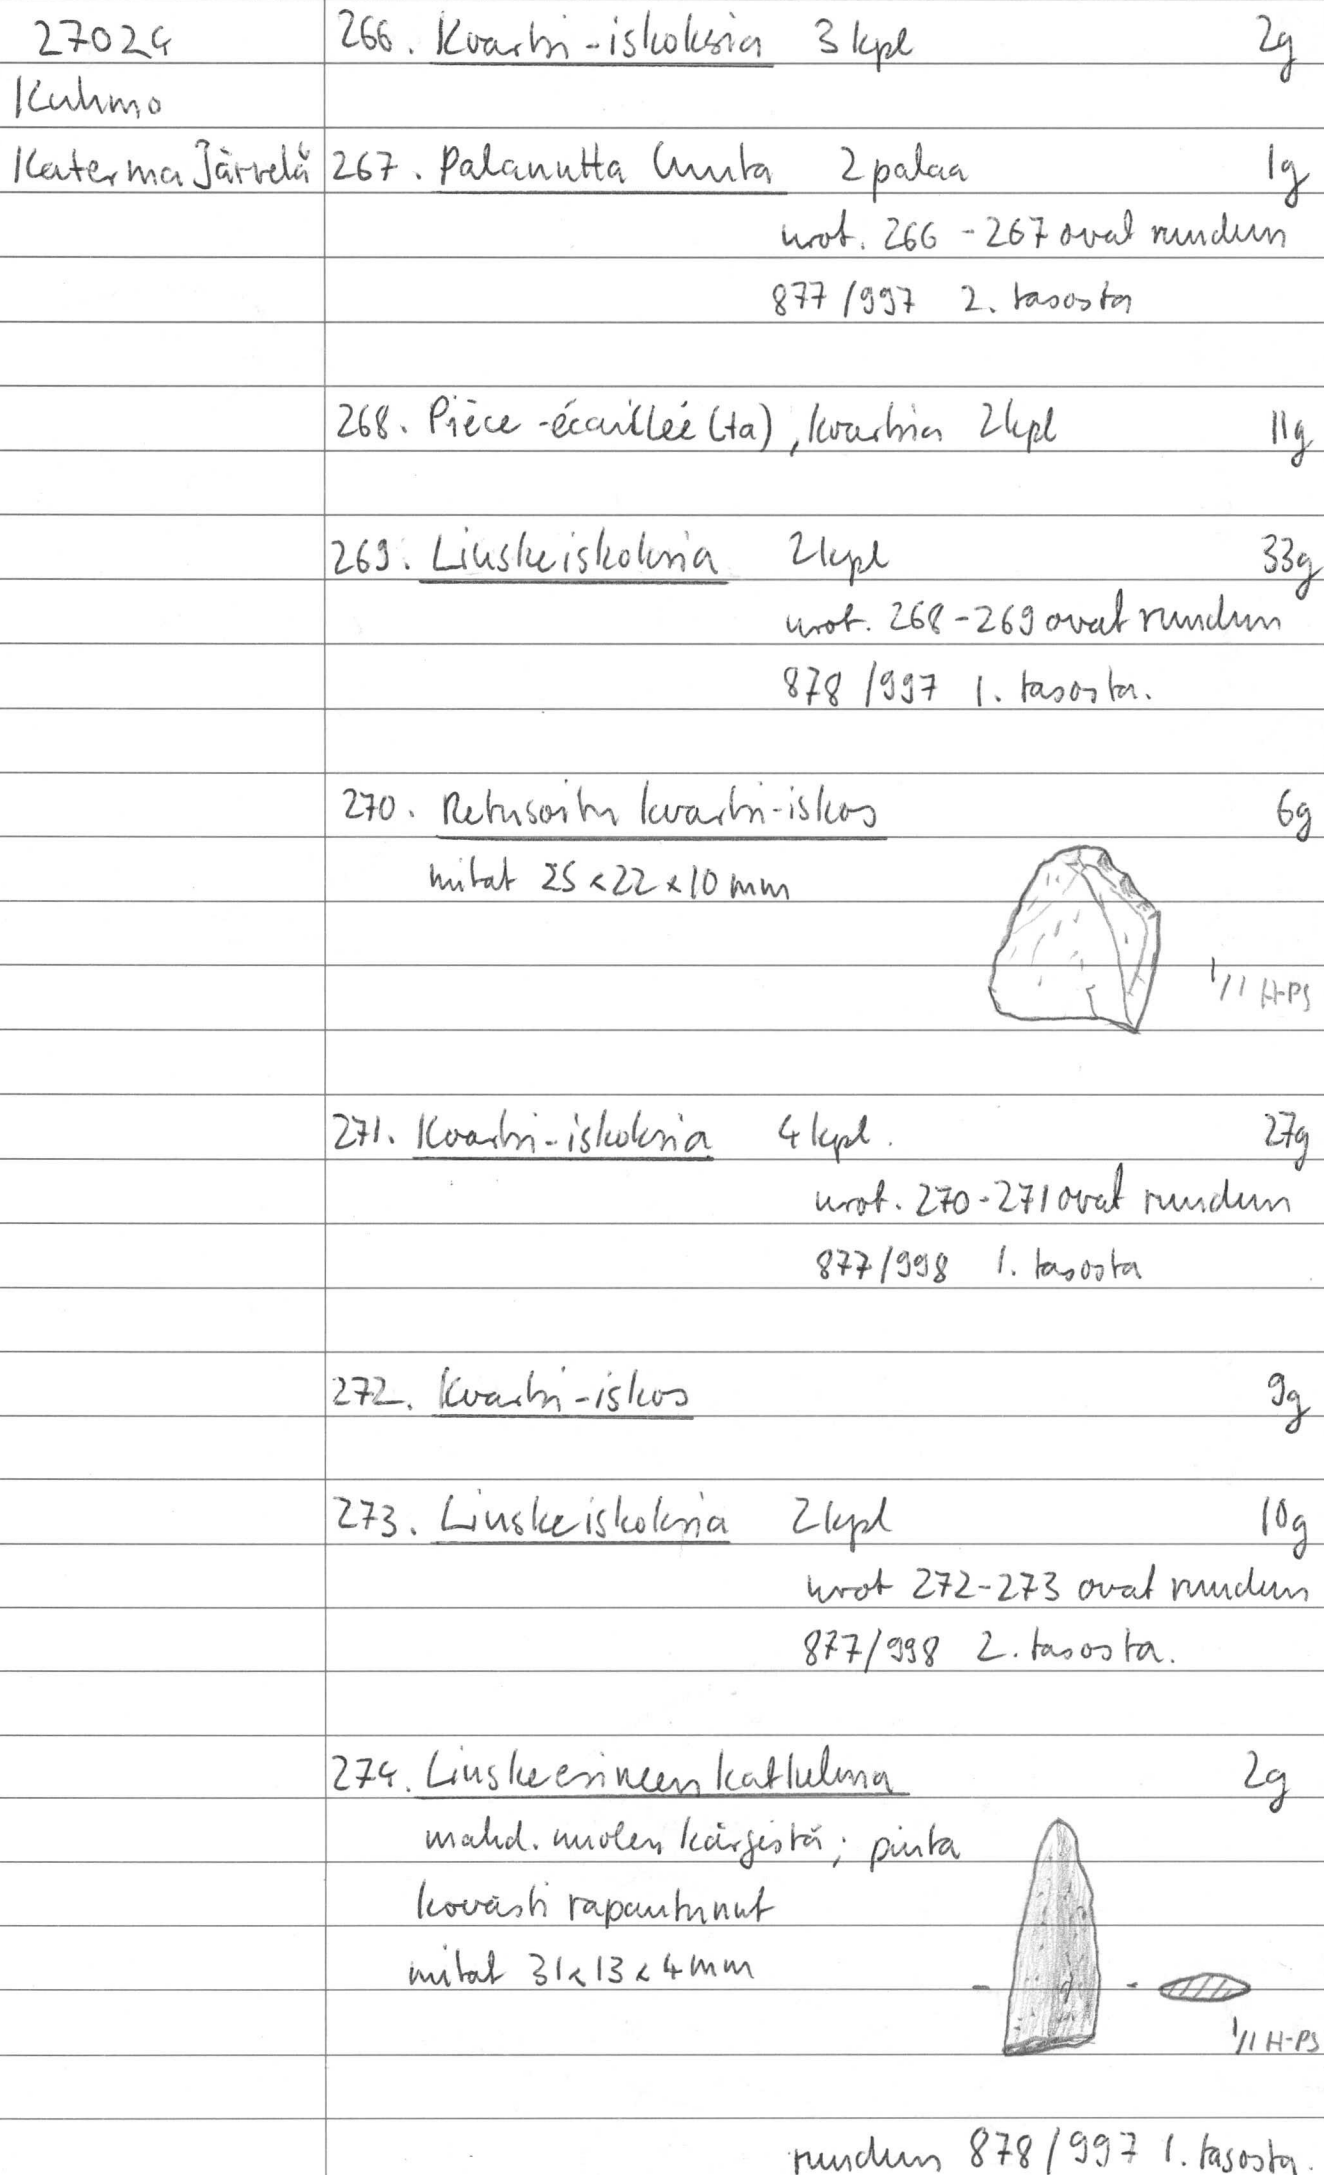 27024
Kuhmo
Katerma Järvelä
266. Kvartsi-iskoksia 3 kpl 2g
267. Palanutta luuta 2 palaa 1g
nrot. 266 - 267 ovat ruudun
877/997 2. tasosta
268. Pièce-écailleé (ta), kvartsia 2 kpl 11g
269. Liuskeiskoksia 2 kpl 33g
nrot. 268 - 269 ovat ruudun
878/997 1. tasosta.
270. Retusoitu kvartsi-iskos 6g
mitat 25 x 22 x 10 mm
1/1 H-PS
271. Kvartsi-iskoksia 4 kpl. 27g
nrot. 270-271 ovat ruudun
877/998 1. tasosta
272. Kvartsi-iskos 9g
273. Liuskeiskoksia 2 kpl 10g
nrot 272-273 ovat ruudun
877/998 2. tasosta.
274. Liuske-esineen katkelma 2g
mahd. nuolen kärjestä; pinta
kovasti rapautunut
mitat 31 x 13 x 4 mm
1/1 H-PS
ruudun 878/997 1. tasosta.